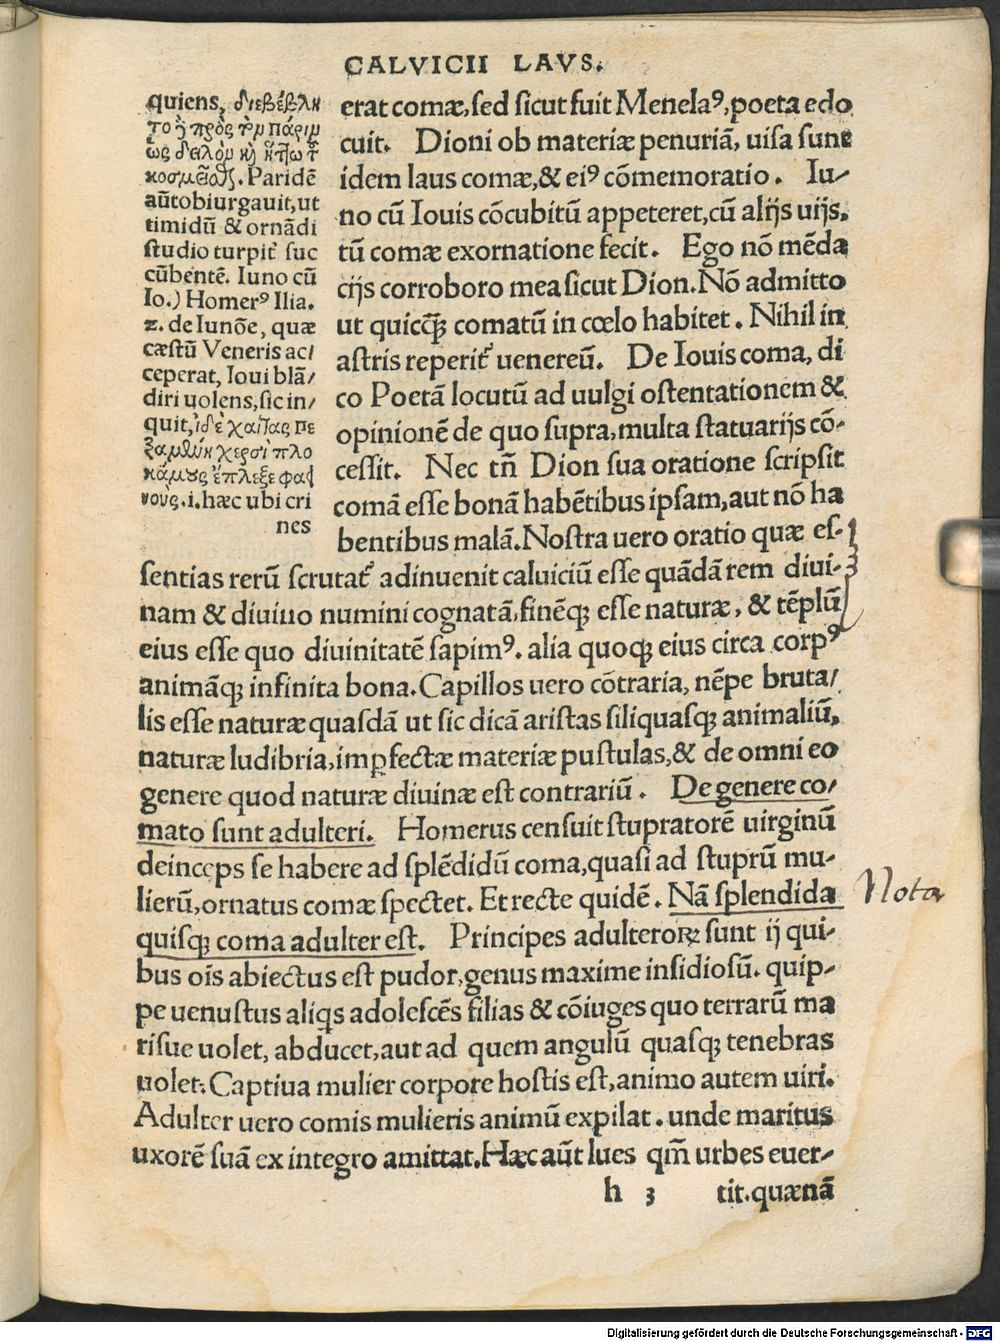 CALVICII LAVS.
quiens, διεβέβλη
το ἢ πρὸς τὸμ πάριμ
ως δειλὸμ κὴ
. Paridē
aūtobiurgauit,ut
timidū & ornādi
studio turpit᷑ suc
cūbentē. Iuno cū
Io.) Homerꝰ Ilia.
ξ. de Iunōe, quæ
cæstū Veneris ac/
ceperat, Ioui blā/
diri uolens,sic in/
quit,ἰδὲ χαίτας πε
ξαμένη χερσὶ πλο
κάμους ἔπλεξε φαϛ
νοὺς.i.hæc ubi cri
nes
erat comæ,sed sicut fuit Menelaꝰ,poeta edo
cuit. Dioni ob materiæ penuriā, uisa sunt
idem laus comæ,& eiꝰ cōmemoratio. Iu/
no cū Iouis cōcubitū appeteret,cū alijs uijs,
tū comæ exornatione fecit. Ego nō mēda
cijs corroboro mea sicut Dion.Nō admitto
ut quicꝗ̄ comatū in cœlo habitet. Nihil in
astris reperit᷑ uenereū. De Iouis coma, di
co Poetā locutū ad uulgi ostentationem &
opinionē de quo supra,multa statuarijs cō-
cessit. Nec tn̄ Dion sua oratione scripsit
comā esse bonā habētibus ipsam,aut nō ha
bentibus malā.Nostra uero oratio quæ es-
sentias rerū scrutat᷑ adinuenit caluiciū esse quādā rem diui-
nam & diuino numini cognatā,finēqꝫ esse naturæ, & tēplū
eius esse quo diuinitatē sapimꝰ. alia quoqꝫ eius circa corpꝰ
animāqꝫ infinita bona.Capillos uero cōtraria, nēpe bruta/
lis esse naturæ quasdā ut sic dicā aristas siliquasqꝫ animaliū,
naturæ ludibria,imꝑfectæ materiæ pustulas,& de omni eo
genere quod naturæ diuinæ est contrariū. De genere co/
mato sunt adulteri. Homerus censuit stupratorē uirginū
deinceps se habere ad splēdidū coma,quasi ad stuprū mu-
lierū,ornatus comæ spectet. Et recte quidē. Nā splendida
quisqꝫ coma adulter est. Principes adulteroꝝ sunt ij qui-
bus oīs abiectus est pudor,genus maxime insidiosū. quip-
pe uenustus aliqs adolescēs filias & cōiuges quo terrarū ma
risue uolet, abducet,aut ad quem angulū quasqꝫ tenebras
uolet.Captiua mulier corpore hostis est,animo autem uiri.
Adulter uero comis mulieris animū expilat. unde maritus
uxorē suā ex integro amittat.Hæc aūt lues qm̄ urbes euer-
h 3 tit.quænā
Nota
Digitalisierung gefördert durch die Deutsche Forschungsgemeinschaft - DFG